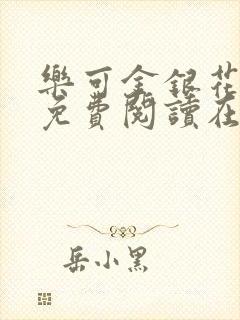 樂可金銀花
免費閱讀在
岳小黑